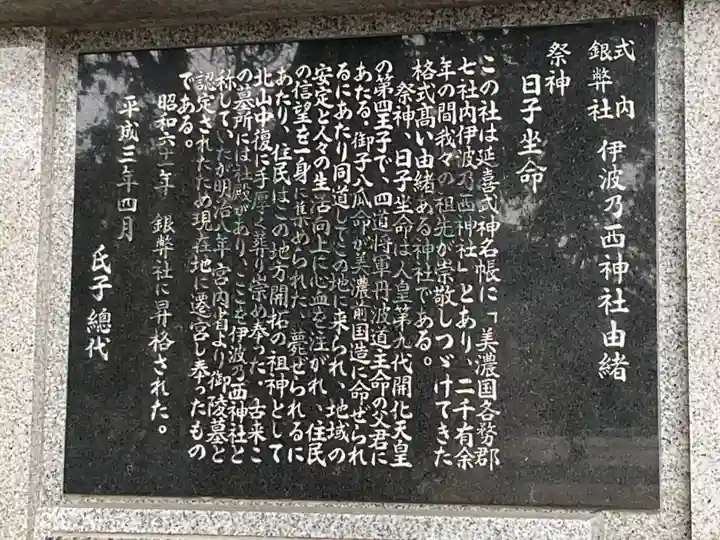 式内
銀幣社
伊波乃西神社由緒
祭神
日子坐命
この社は延喜式神名帳に「美濃国各務郡
七社内伊波乃西神社」とあり、二千有余
年の間我々の祖先が崇敬しつゞけてきた
格式高い由緒ある神社である。
祭神、日子坐命は人皇第九代開化天皇
の第四王子で、四道将軍丹波道主命の父君に
あたる。御子八瓜命が美濃前国造に命ぜられ
るにあたり同道してこの地に来られ、地域の
安定と人々の生活向上に心血を注がれ、住民
の信望を一身に集められた、薨ぜられるに
あたり、住民はこの地方開拓の祖神として
北山中復に手厚く葬り崇め奉った。古来こ
の墓所には社殿があり、ここを伊波乃西神社と
称していたが明治八年、宮内省より御陵墓と
認定されたため現在地に遷宮し奉ったもの
である。
昭和六十一年 銀幣社に昇格された。
平成三年四月
氏子總代